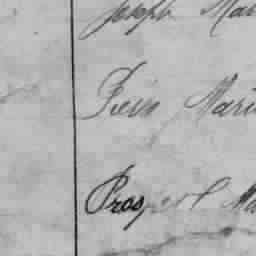 Joseph Mar
Fiers Mari
Prosper Ma